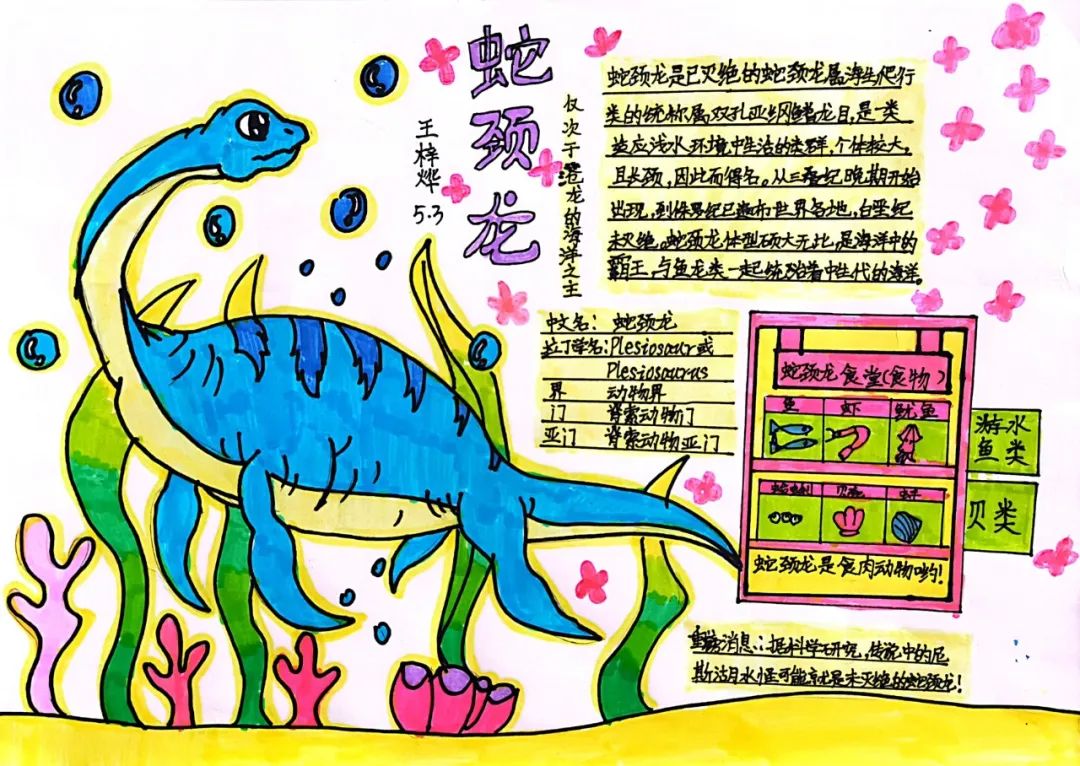 蛇颈龙
仅次于沧龙的海洋之主
王梓烨
5.3
蛇颈龙是已灭绝的蛇颈龙属海生爬行
类的统称,属双孔亚纲鳍龙目,是一类
适应浅水环境中生活的类群,个体较大,
且长颈,因此而得名。从三叠纪晚期开始
出现,到侏罗纪已遍布世界各地,白垩纪
末灭绝。蛇颈龙体型硕大无比,是海洋中的
霸王,与鱼龙类一起统治着中生代的海洋。
中文名: 蛇颈龙
拉丁学名:Plesiosaur或
Plesiosaurus
界 动物界
门 脊索动物门
亚门 脊索动物亚门
蛇颈龙食堂(食物)
鱼 虾 鱿鱼
游水
鱼类
贝类
蛇颈龙是食肉动物哟!
消息:据科学研究,传说中的尼
斯湖水怪可能就是未灭绝的蛇颈龙!